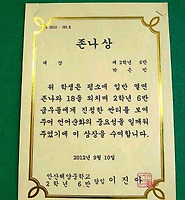 존나상
대 상
제 2학년 6반
박 은 빈
위 학생은 평소에 입만 열면
존나와 18을 외치며 2학년 6반
급우들에게 진정한 싼티를 보여
주어 언어순화의 중요성을 일깨워
주었기에 이 상장을 수여합니다.
2012년 9월 10일
안산해양중학교
2 학 년 6 반 담임 이 진 아